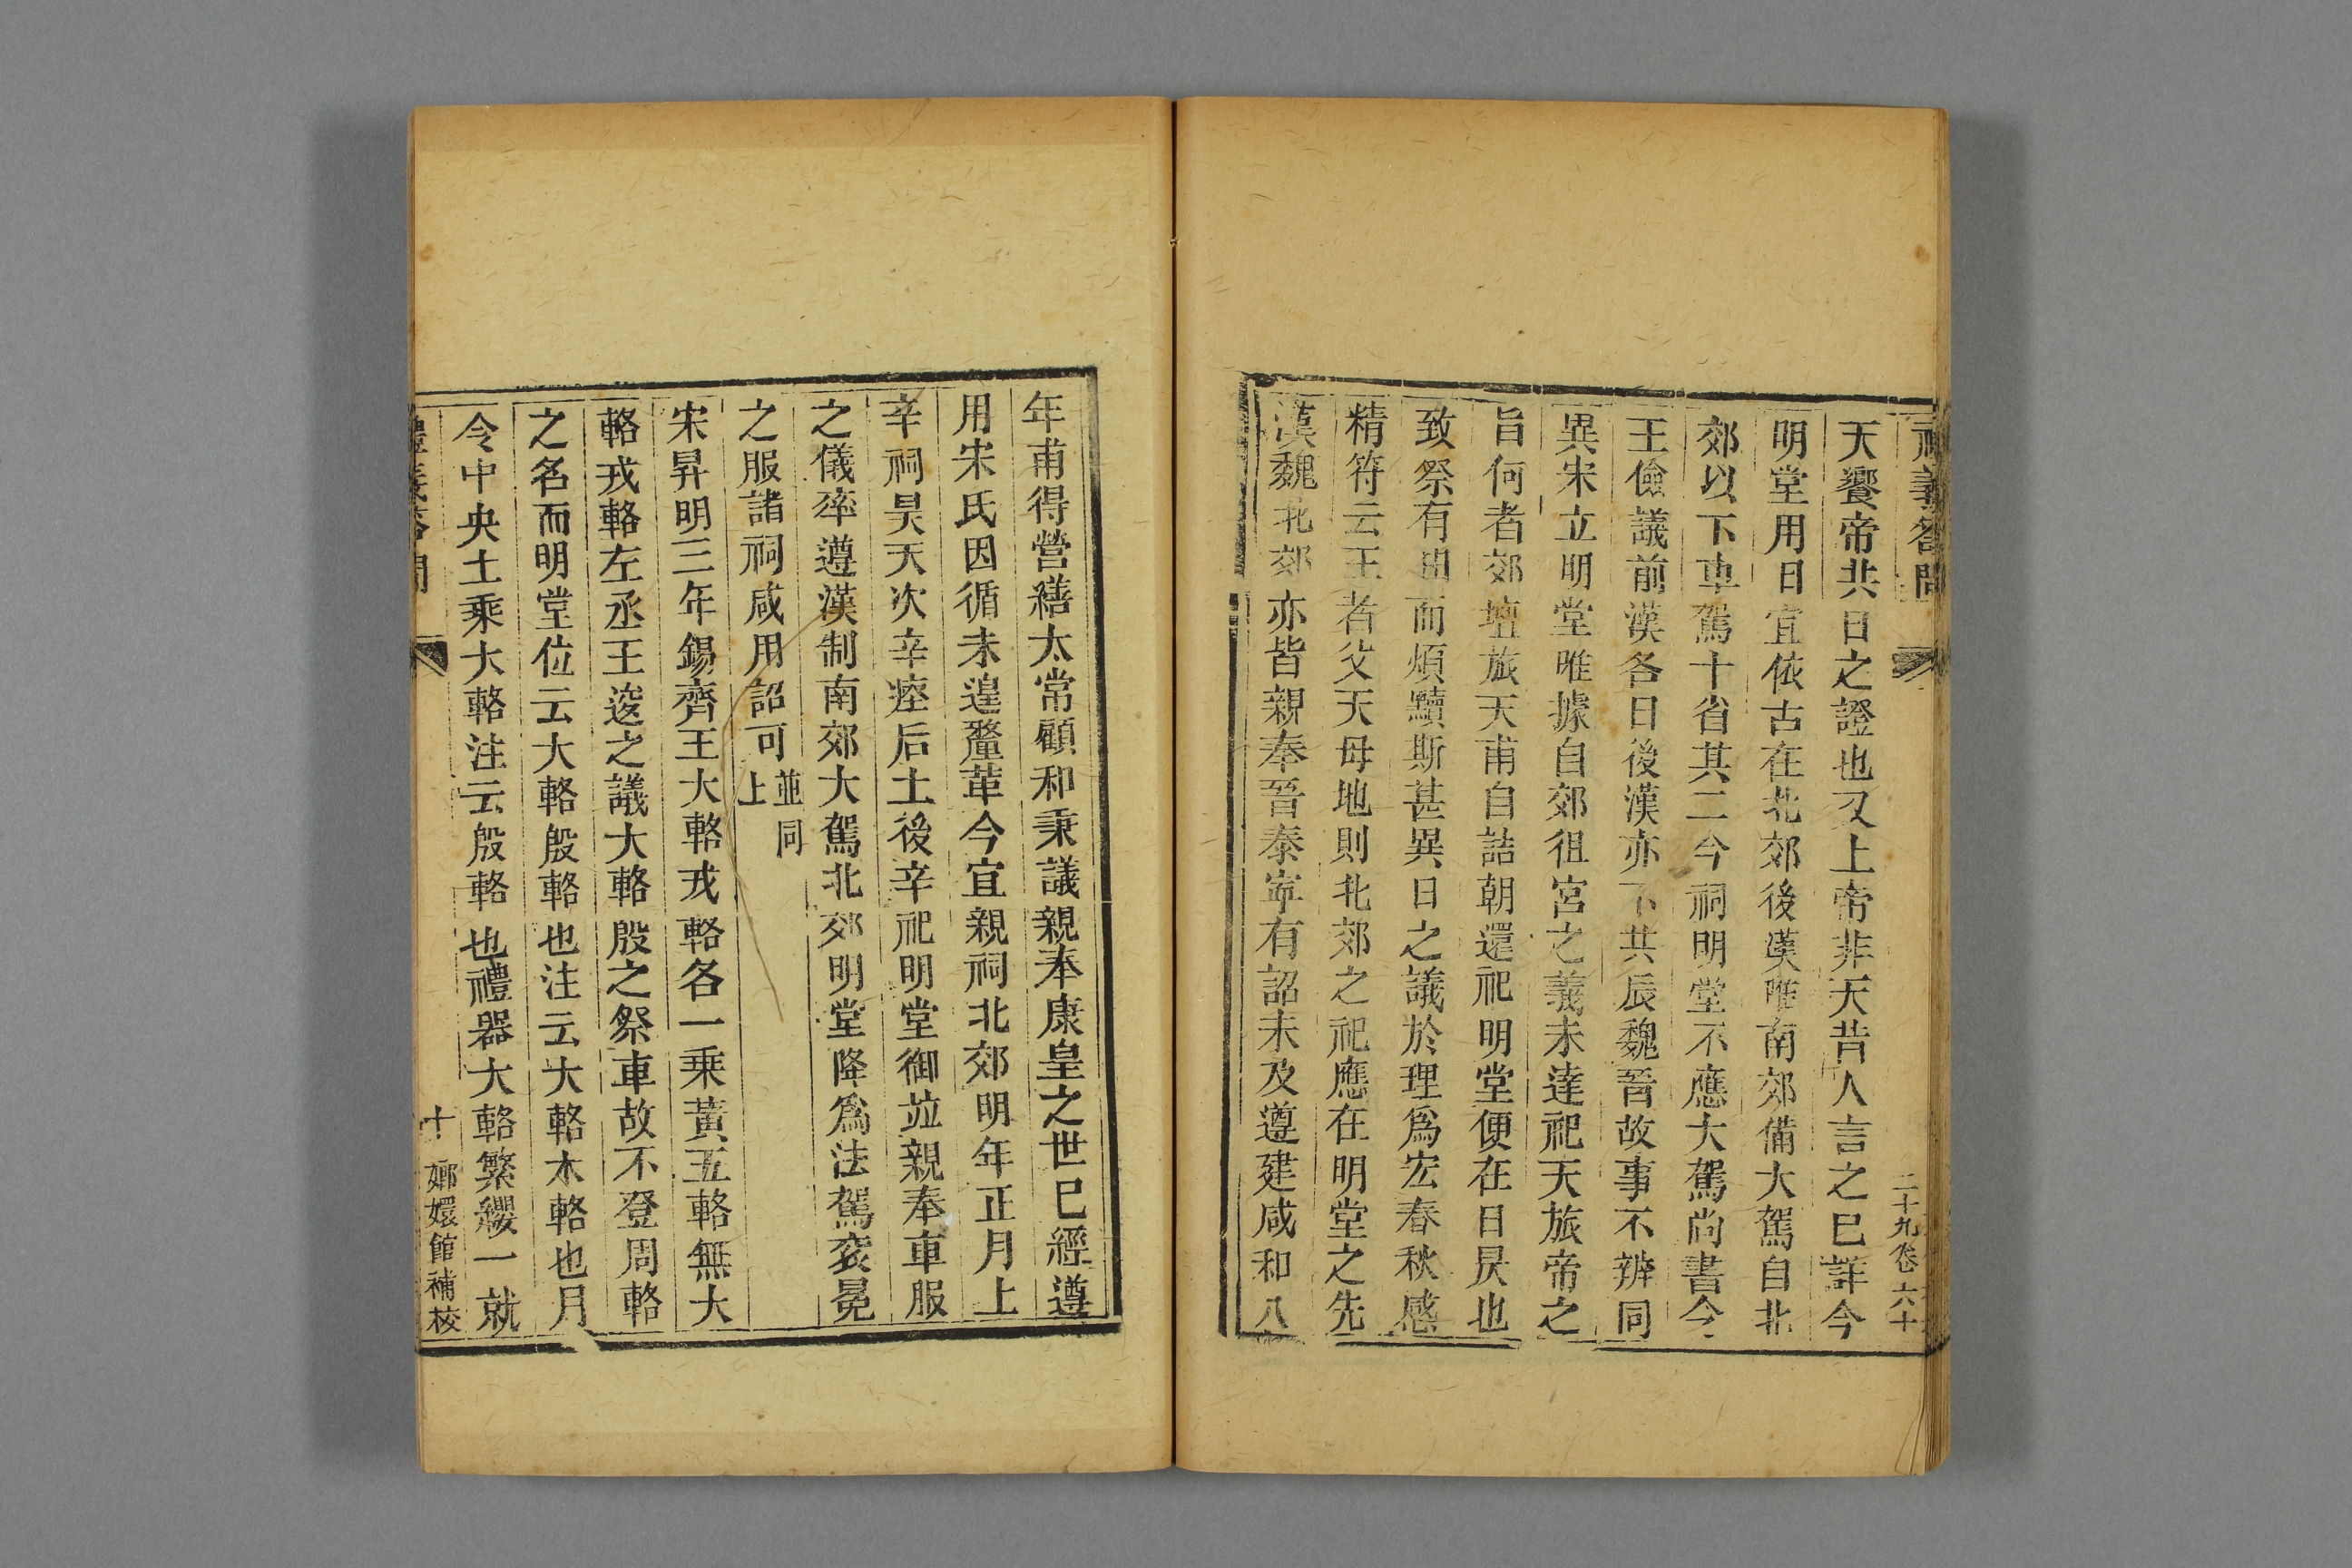 禮義答問
二十九卷六十
天饗帝共日之證也又上帝非天昔人言之巳詳今
明堂用日宜依古在北郊後漢唯南郊備大駕自北
郊以下車駕十省其二今祠明堂不應大駕尚書令
王儉議前漢各日後漢亦下共辰魏晉故事不辨同
異宋立明堂唯據自郊徂宮之義未達祀天旅帝之
旨何者郊壇旅天甫自詰朝還祀明堂便在日昃也
致祭有由而煩黷斯甚異日之議於理爲宏春秋感
精符云王者父天母地則北郊之祀應在明堂之先
漢魏北郊亦皆親奉晉泰寧有詔未及遵建咸和八
年甫得營繕太常顧和秉議親奉康皇之世巳經遵
用宋氏因循未遑釐革今宜親祠北郊明年正月上
辛祠昊天次辛瘞后土後辛祀明堂御竝親奉車服
之儀率遵漢制南郊大駕北郊明堂降爲法駕衮冕
之服諸祠咸用詔可並同上
宋昇明三年錫齊王大輅戎輅各一乘黃五輅無大
輅戎輅左丞王逡之議大輅殷之祭車故不登周輅
之名而明堂位云大輅殷輅也注云大輅木輅也月
令中央土乘大輅注云殷輅也禮器大輅繁纓一就
禮義答問
十
嫏嬛館補校